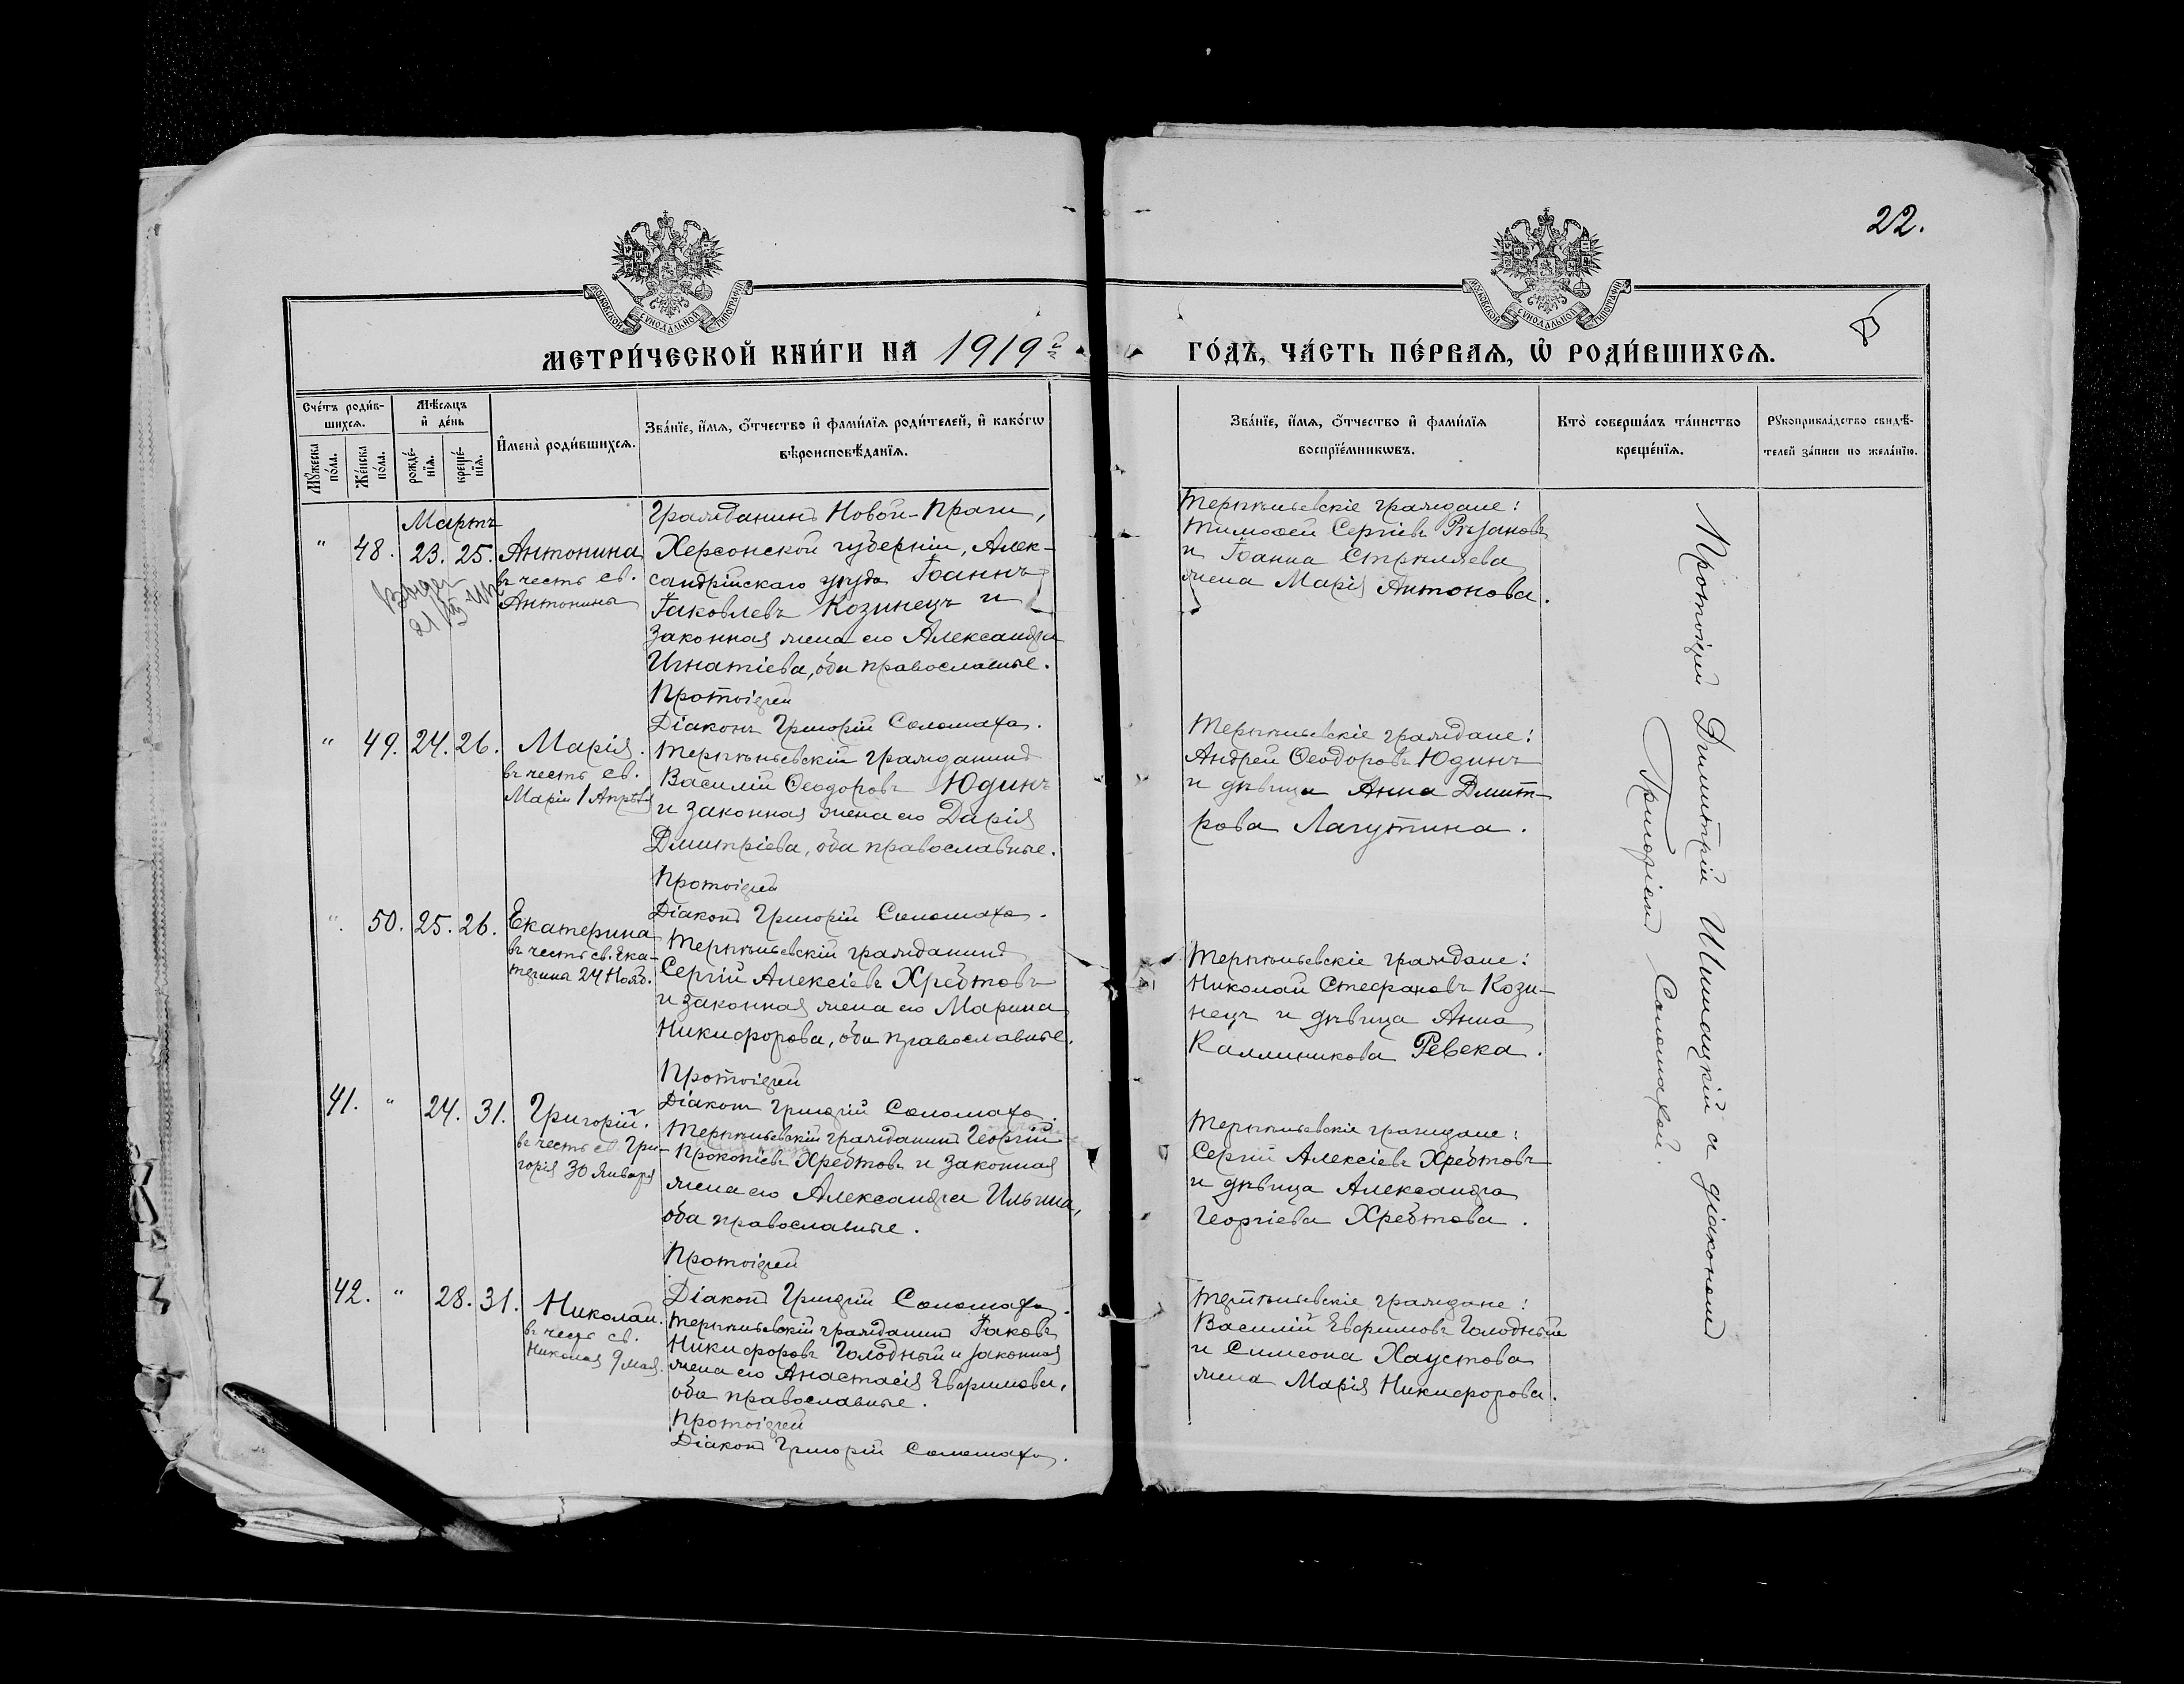 22.
МОСКОВСКОЙ СѴНОДАЛЬНОЙ ТИПОГРАФІИ
МОСКОВСКОЙ СѴНОДАЛЬНОЙ ТИПОГРАФІИ
МЕТРИ́ЧЕСКОЙ КНИ́ГИ НА 1919й
ГО́ДЪ, ЧА́СТЬ ПЕ́РВАѦ, Ѡ҆ РОДИ́ВШИХСѦ.
Сче́тъ роди́в-
шихсѧ.
Мꙋ́жеска
по́ла.
Же́нска
по́ла.
Мѣ́сѧцъ
и҆ де́нь
рожде́-
нїѧ.
креще́-
нїѧ.
И҆мена̀ роди́вшихсѧ.
Зва́нїе, и҆́мѧ, ѻ҆́тчество и҆ фами́лїѧ роди́телей, и҆ како́гѡ
вѣроисповѣ́данїѧ.
Зва́нїе, и҆́мѧ, ѻ҆́тчество и҆ фами́лїѧ
воспрїе́мникѡвъ.
Кто̀ соверша́лъ та́инство
креще́нїѧ.
Рꙋкоприкла́дство свидѣ́-
телей за́писи по жела́нїю.
Мартъ
" 48. 23. 25. Антонина
въ честь св.
Антонины
Гражданинъ Новой-Праги,
Херсонской губерніи, Алек-
сандрійскаго уѣзда Іоаннъ
Іаковлевъ Козинецъ и
законная жена его Александра
Игнатіева, оба православные.
Протоіерей
Діаконъ Григорій Соломаха.
Терпѣньевскіе граждане:
Тимоѳей Сергіевъ Рѣзановъ
и Іоанна Стрѣляева
жена Марія Антонова.
" 49. 24. 26. Марія.
въ честь св.
Маріи 1 Апрѣля
Терпѣньевскій гражданинъ
Василій Ѳеодоровъ Юдинъ
и законная жена его Дарія
Дмитріева, оба православные.
Протоіерей
Діаконъ Григорій Соломаха.
Терпѣньевскіе граждане:
Андрей Ѳеодоровъ Юдинъ
и дѣвица Анна Дмит-
рова Лагутина.
" 50. 25. 26. Екатерина
въ честь св. Ека-
терина 24 Нояб.
Терпѣньевскій гражданинъ
Сергій Алексіевъ Хребтовъ
и законная жена его Марина
Никифорова, оба православные.
Протоіерей
Діаконъ Григорій Соломаха.
Терпѣньевскіе граждане:
Николай Стефановъ Кози-
нецъ и дѣвица Анна
Каллиникова Ревека.
41. " 24. 31. Григорій.
въ честь св. Гри-
горія 30 Января
Терпѣньевскій гражданинъ Георгій
Прокопіевъ Хребтовъ и законная
жена его Александра Ильина,
оба православные.
Протоіерей
Діаконъ Григорій Соломаха.
Терпѣньевскіе граждане:
Сергій Алексіевъ Хребтовъ
и дѣвица Александра
Георгіева Хребтова.
42. " 28. 31. Николай.
въ честь св.
Николая 9 мая.
Терпѣньевскій гражданинъ Іаковъ
Никифоровъ Голодный и законная
жена его Анастасія Евфимова,
оба православные.
Протоіерей
Діаконъ Григорій Соломаха.
Терпѣньевскіе граждане:
Василій Евфимовъ Голодный
и Симеона Хаустова
жена Марія Никифорова.
Протоіерей Димитрій Шишацкій а діакономъ
Григоріемъ Соломахой.